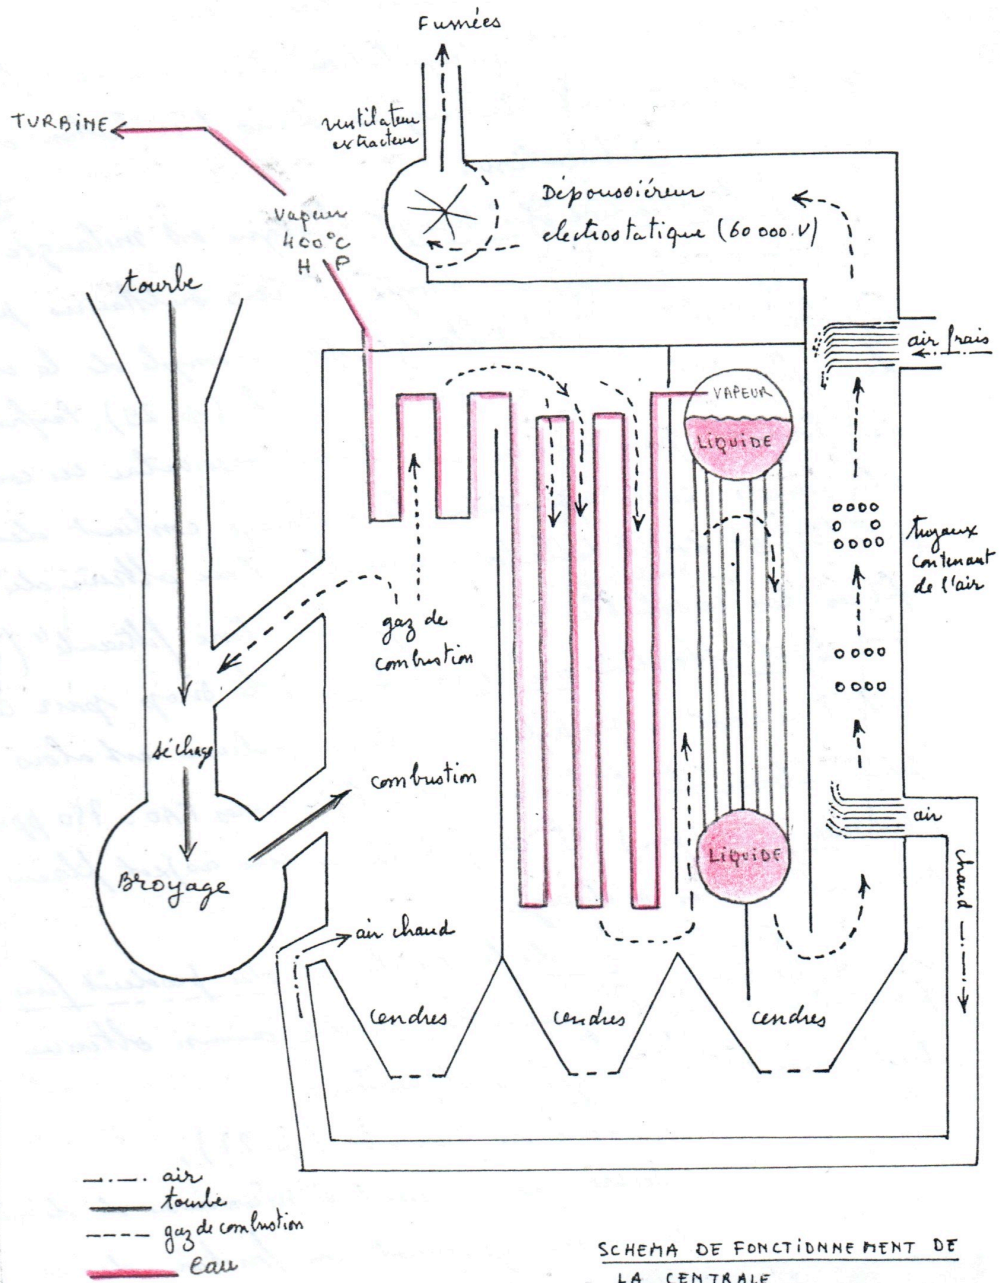 Fumées
TURBINE
ventilateur
extracteur
Vapeur
400°C
H P
Dépoussiéreur
electrostatique (60 000.V)
tourbe
air frais
VAPEUR
LIQUIDE
tuyaux
contenant
de l'air
gaz de
combustion
séchage
combustion
air
LIQUIDE
Broyage
chaud
air chaud
cendres
cendres
cendres
air
tourbe
gaz de combustion
eau
SCHEMA DE FONCTIONNEMENT DE
LA CENTRALE